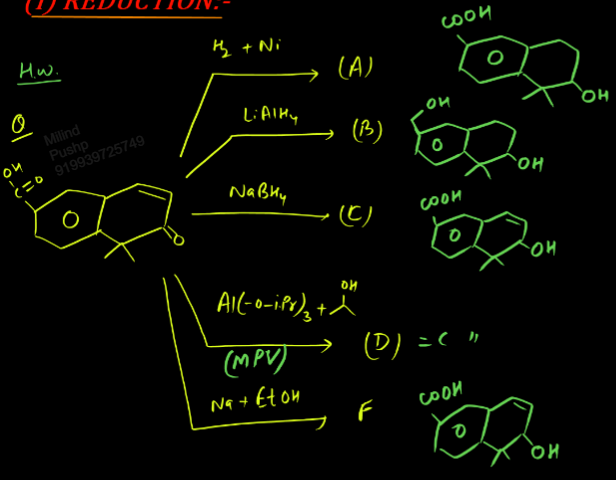 (1) REDUCTION:-
H.W.
Q
Milind
Pushp
919939725749
H₂ + Ni
(A)
COOH
OH
LiAlH₄
(B)
OH
OH
OH
C=O
O
NaBH₄
(C)
COOH
OH
Al(-O-iPr)₃ + OH
(MPV)
(D) = C "
Na + EtOH
F
COOH
OH